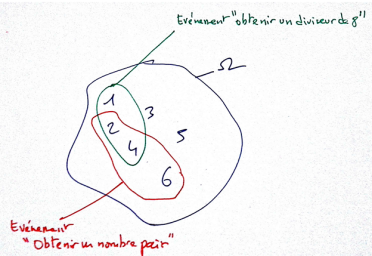 Evénement "obtenir un diviseur de 8"
Ω
1
3
2
5
4
6
Evénement
"Obtenir un nombre pair"